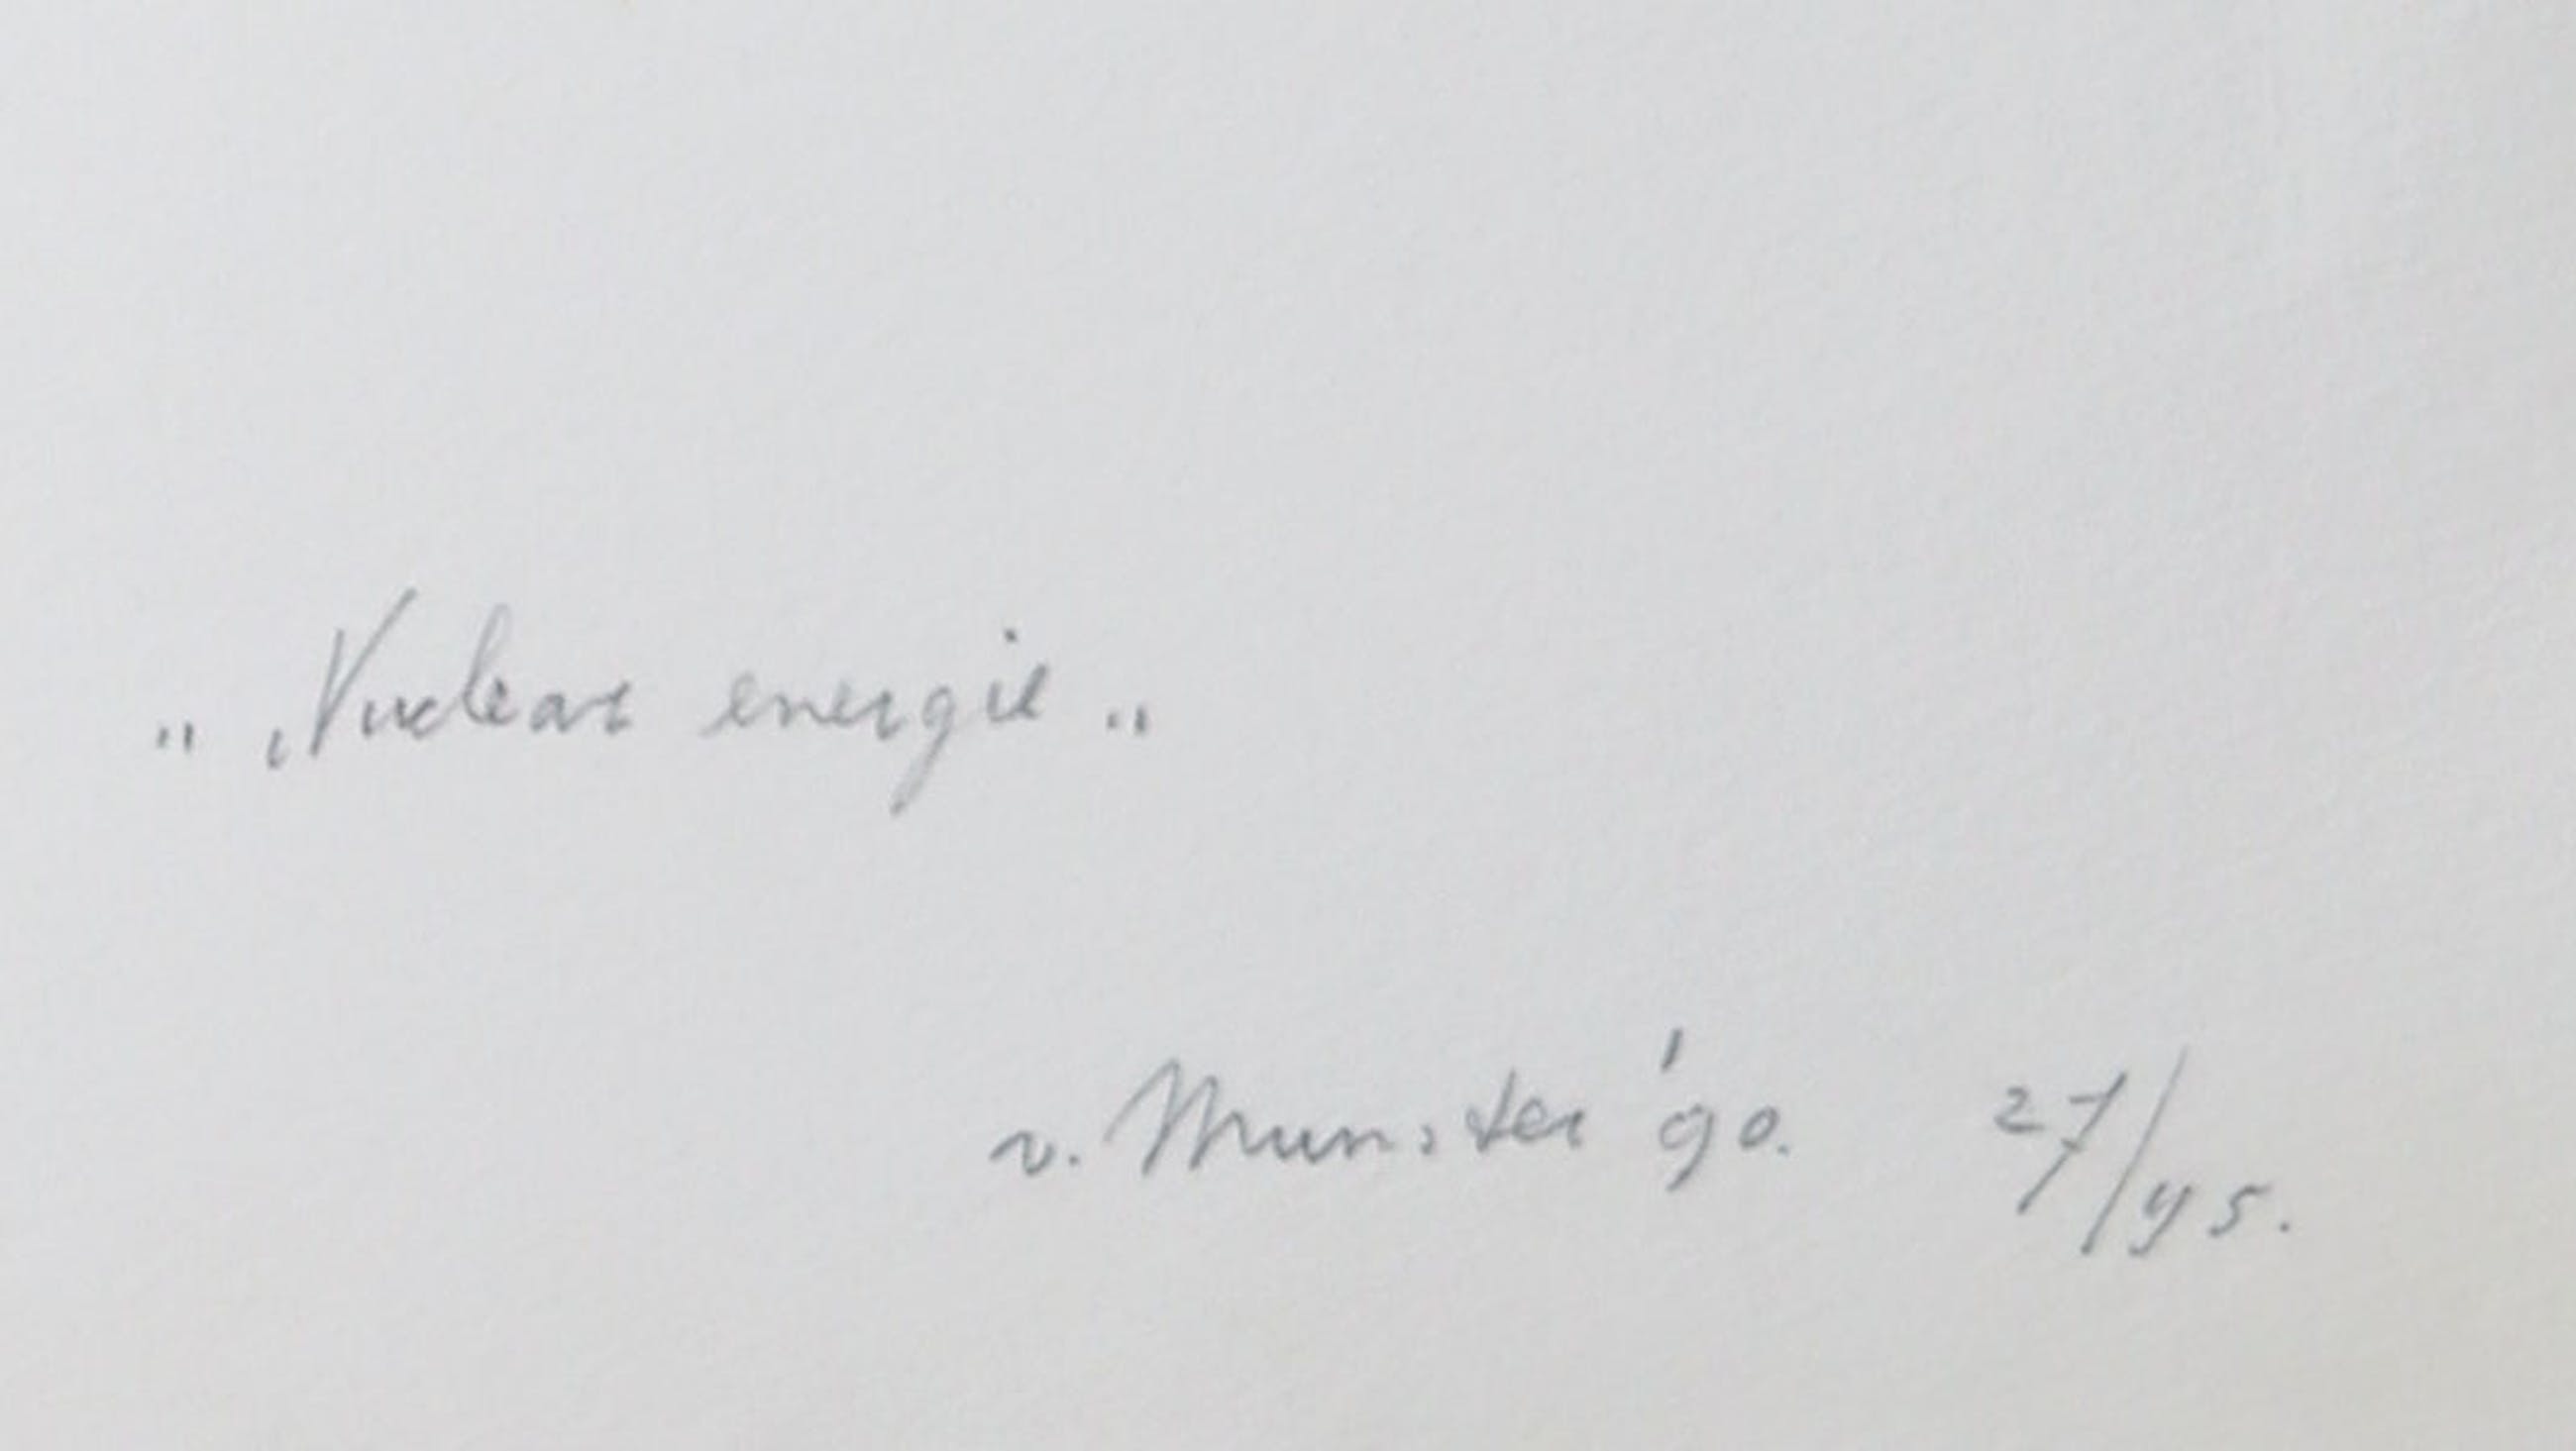 „ Nuclear energie „
v. Munster '90. 27/45.